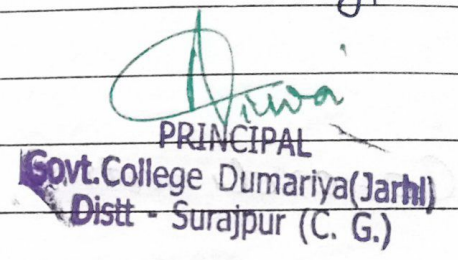 PRINCIPAL
Govt.College Dumariya(Jarhi)
Distt - Surajpur (C. G.)